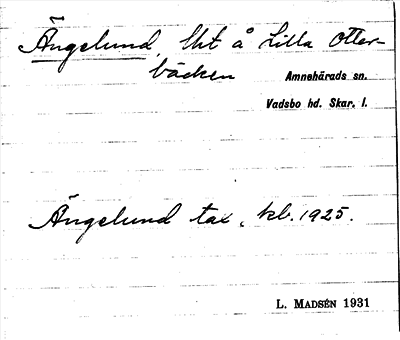 Ängelund, lht å Lilla Otter-
bäcken
Amnehärads sn.
Vadsbo hd. Skar. l.
Ängelund tax. kl. 1925.
L. MADSÉN 1931